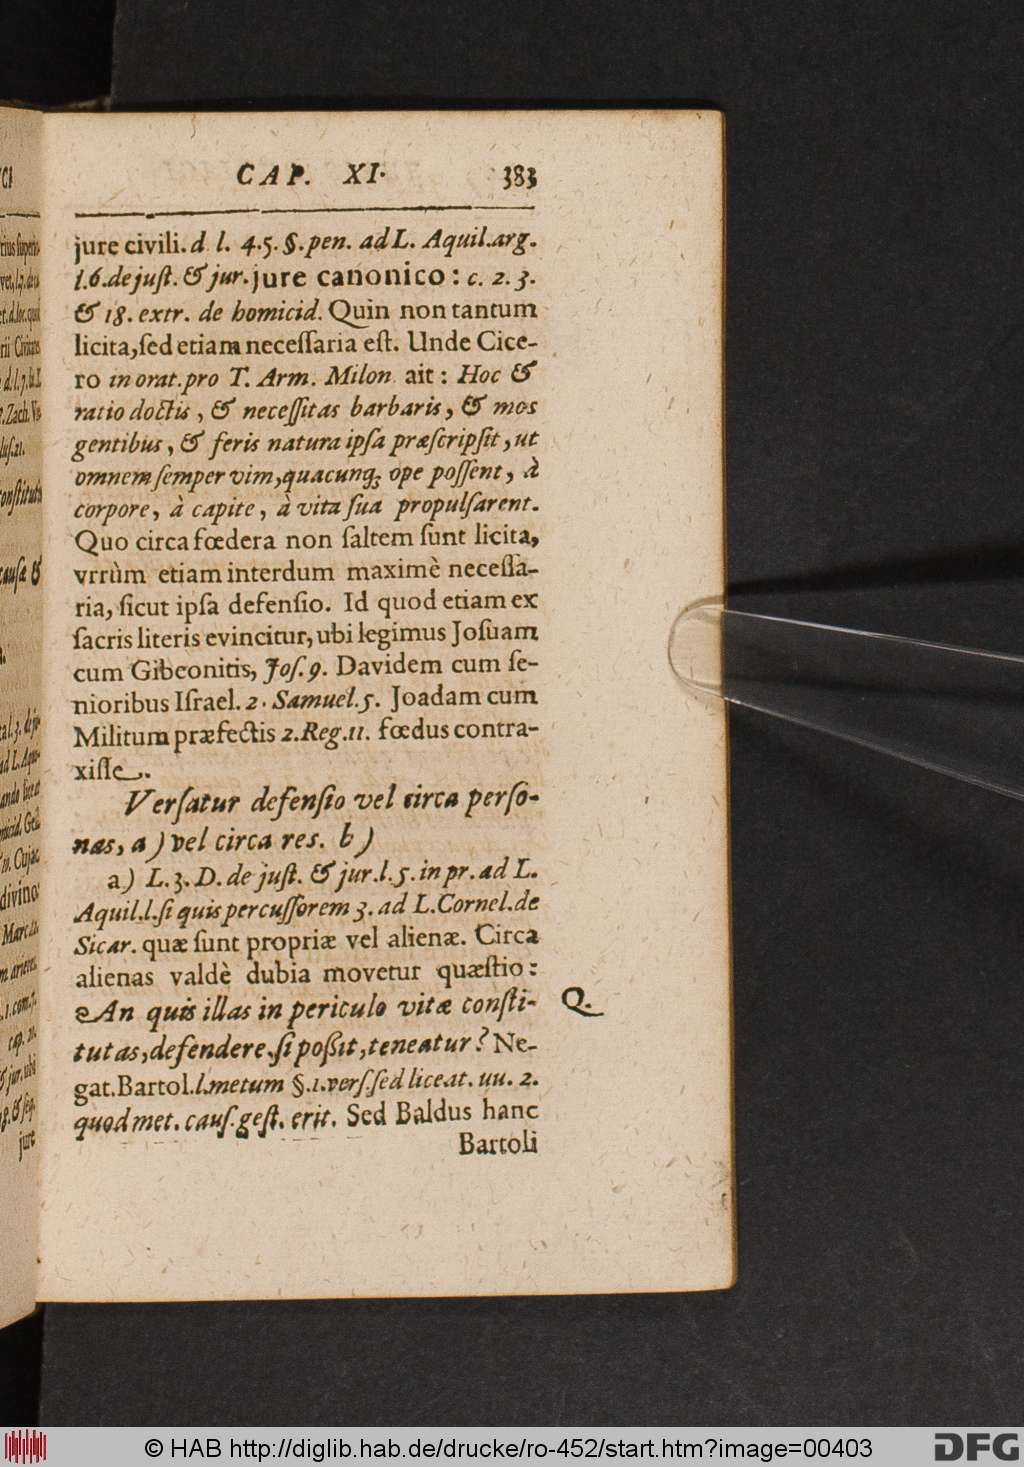 CAP. XI. 383
jure civili. d l. 4. 5. §. pen. ad L. Aquil. arg.
l. 6. de juſt. & jur. jure canonico: c. 2. 3.
& 18. extr. de homicid. Quin non tantum
licita, ſed etiam neceſſaria eſt. Unde Cice-
ro in orat. pro T. Arm. Milon ait: Hoc &
ratio doctis, & neceſſitas barbaris, & mos
gentibus, & feris natura ipſa præſcripſit, ut
omnem ſemper vim, quacunq; ope poſſent, à
corpore, à capite, à vita ſua propulſarent.
Quo circa fœdera non ſaltem ſunt licita,
vrrùm etiam interdum maximè neceſſa-
ria, ſicut ipſa defenſio. Id quod etiam ex
ſacris literis evincitur, ubi legimus Joſuam
cum Gibeonitis, Joſ. 9. Davidem cum ſe-
nioribus Iſrael. 2. Samuel. 5. Joadam cum
Militum præfectis 2. Reg. 11. fœdus contra-
xiſſe.
Verſatur defenſio vel circa perſo-
nas, a) vel circa res. b)
a) L. 3. D. de juſt. & jur. l. 5. in pr. ad L.
Aquil. l. ſi quis percuſſorem 3. ad L. Cornel. de
Sicar. quæ ſunt propriæ vel alienæ. Circa
alienas valdè dubia movetur quæſtio:
An quis illas in periculo vitæ conſti- Q.
tutas, defendere, ſi poßit, teneatur? Ne-
gat. Bartol. l. metum §. 1. verſ. ſed liceat. uu. 2.
quod met. cauſ. geſt. erit. Sed Baldus hanc
Bartoli
© HAB http://diglib.hab.de/drucke/ro-452/start.htm?image=00403
DFG